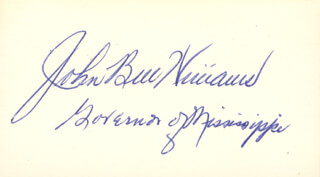 John Bell Williams
Governor of Mississippi